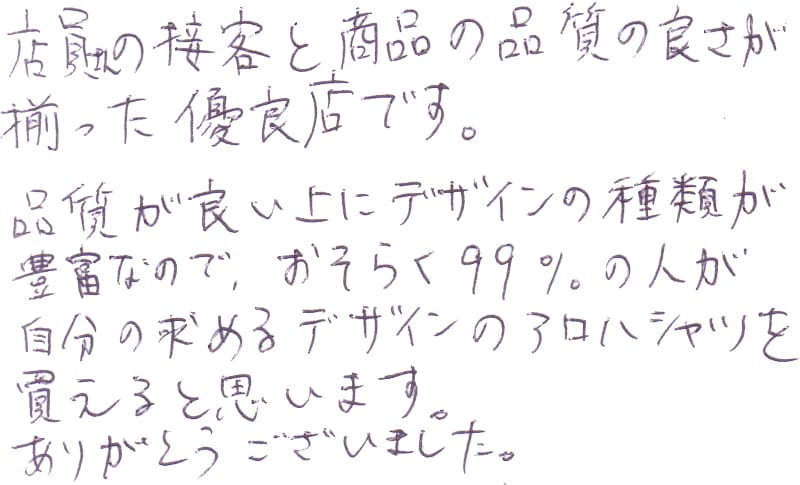 店員さんの接客と商品の品質の良さが
揃った優良店です。
品質が良い上にデザインの種類が
豊富なので、おそらく99%の人が
自分の求めるデザインのアロハシャツを
買えると思います。
ありがとうございました。